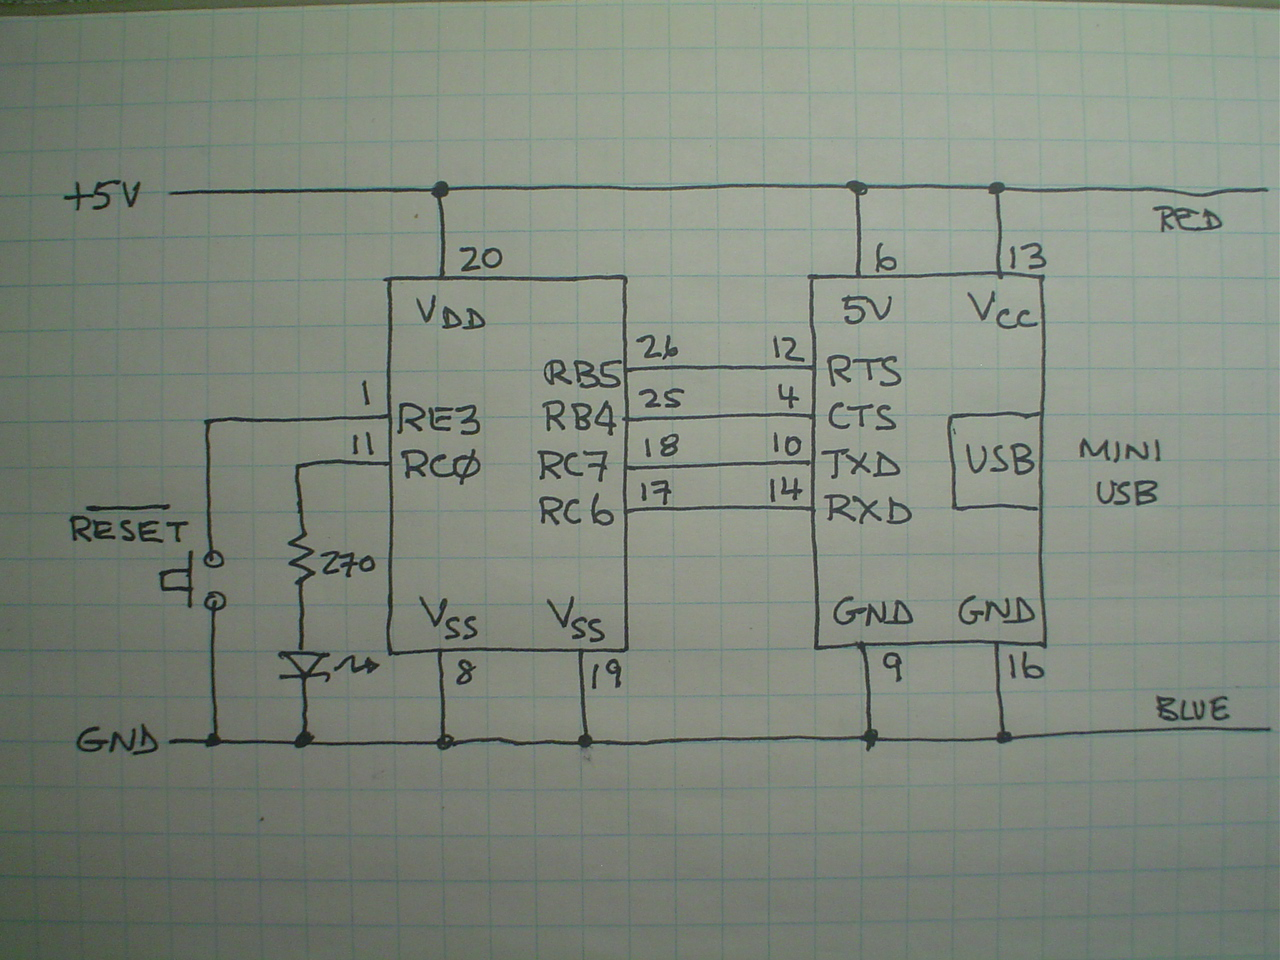 +5V
RED
20
6
13
VDD
5V
VCC
26
12
RB5
RTS
1
25
4
RE3
RB4
CTS
11
18
10
RCØ
RC7
TXD
USB
MINI
USB
17
14
RC6
RXD
RESET
270
VSS
VSS
GND
GND
8
19
9
16
BLUE
GND